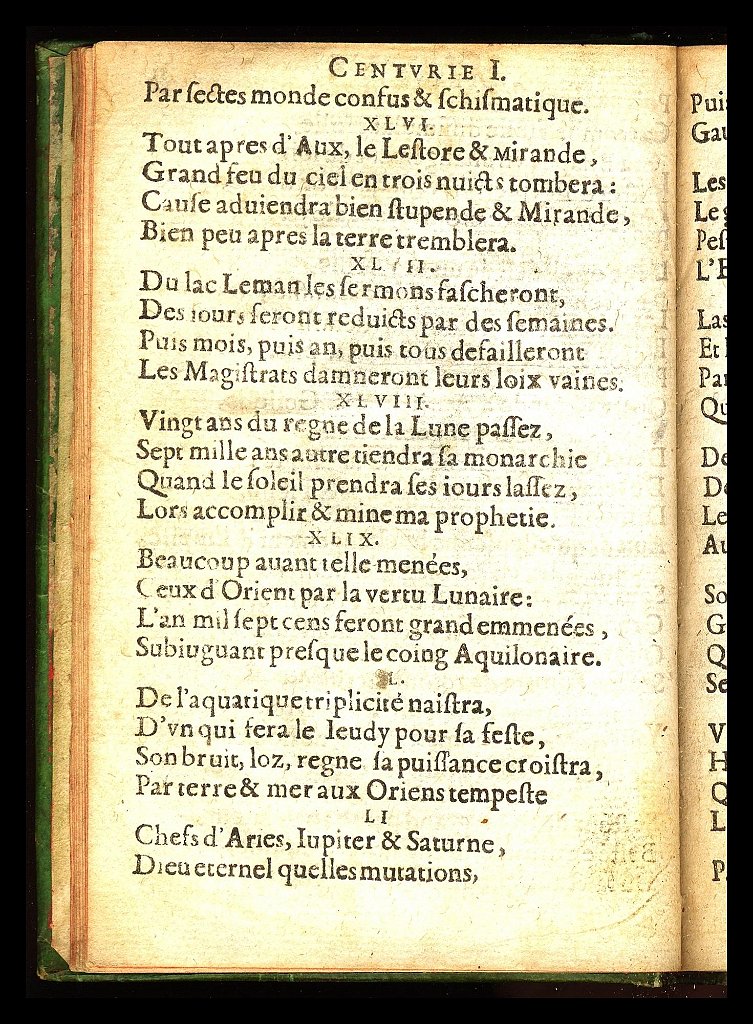 CENTVRIE I.
Par ſectes monde confus & ſchiſmatique.
XLVI.
Tout apres d'Aux, le Leſtore & Mirande,
Grand feu du ciel en trois nuicts tombera:
Cauſe aduiendra bien ſtupende & Mirande,
Bien peu apres la terre tremblera.
XLVII.
Du lac Leman les ſermons faſcheront,
Des iours ſeront reduicts par des ſemaines.
Puis mois, puis an, puis tous defailleront
Les Magiſtrats damneront leurs loix vaines.
XLVIII.
Vingt ans du regne de la Lune paſſez,
Sept mille ans autre tiendra ſa monarchie
Quand le ſoleil prendra ſes iours laſſez,
Lors accomplir & mine ma prophetie.
XLIX.
Beaucoup auant telle menées,
Ceux d'Orient par la vertu Lunaire:
L'an mil ſept cens feront grand emmenées,
Subiuguant preſque le coing Aquilonaire.
L.
De l'aquatique triplicité naiſtra,
D'vn qui fera le Ieudy pour ſa feſte,
Son bruit, loz, regne ſa puiſſance croiſtra,
Par terre & mer aux Oriens tempeſte
LI
Chefs d'Aries, Iupiter & Saturne,
Dieu eternel quelles mutations,
Pui
Gau
Les
Le g
Peſ
L'E
Las
Et
Par
Qu
De
De
Le
Au
So
G
Q
Se
V
H
Q
L
P